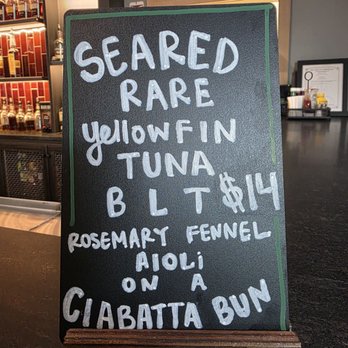 SEARED
RARE
yellowFIN
TUNA
B L T $14
ROSEMARY FENNEL
AIOLi
ON A
CIABATTA BUN